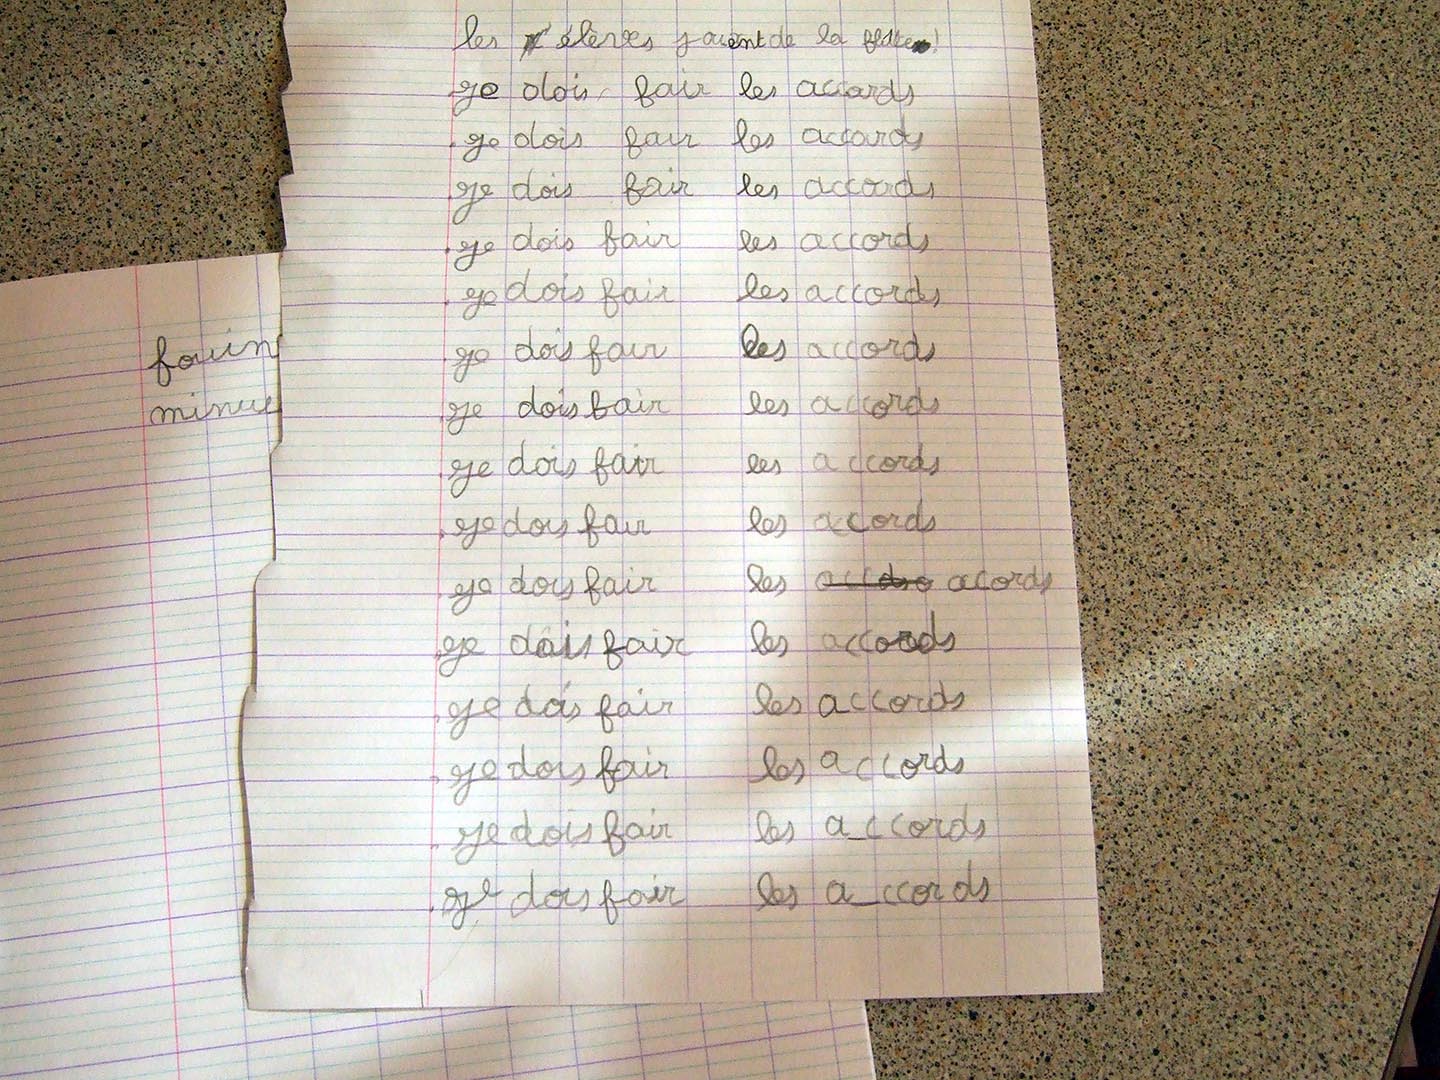 les élèves jouent de la flûte!
je dois fair les accords
je dois fair les accords
je dois fair les accords
je dois fair les accords
je dois fair les accords
je dois fair les accords
je dois fair les accords
je dois fair les accords
je dois fair les acords
je dois fair les acords
je dois fair les accords
je dois fair les accords
je dois fair les accords
je dois fair les accords
je dois fair les accords
fouin
minue